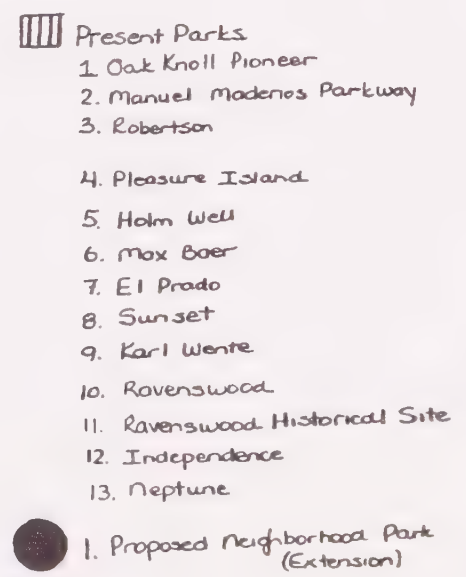 Present Parks
1. Oak Knoll Pioneer
2. Manuel Maderios Parkway
3. Robertson
4. Pleasure Island
5. Holm Well
6. Max Baer
7. El Prado
8. Sunset
9. Karl Wente
10. Ravenswood
11. Ravenswood Historical Site
12. Independence
13. Neptune
1. Proposed Neighborhood Park
(Extension)